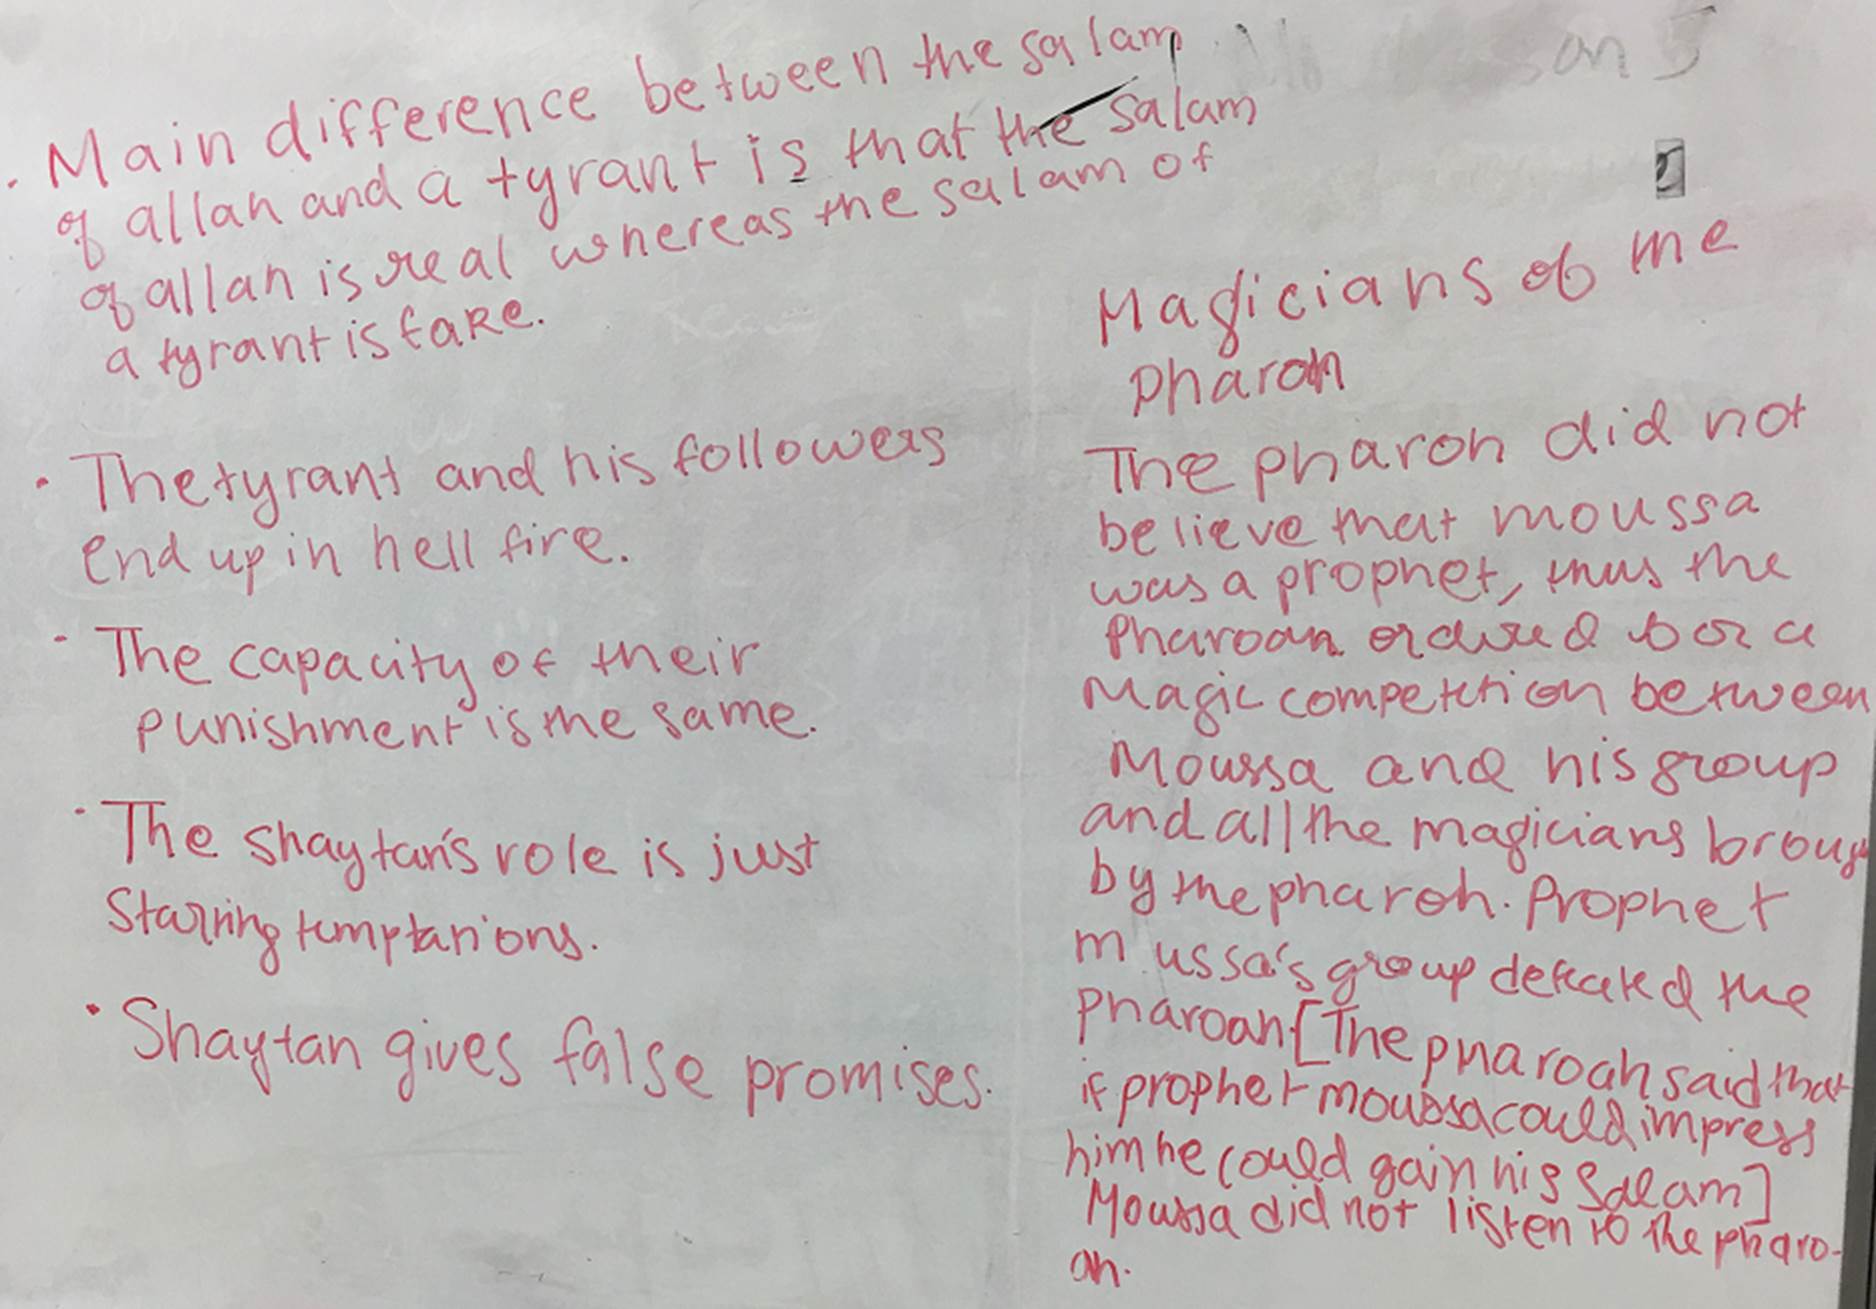 . Main difference between the salam
of allah and a tyrant is that the salam
of allah is real whereas the salam of
a tyrant is fake.
. The tyrant and his followers
end up in hell fire.
- The capacity of their
punishment is the same.
- The shaytan's role is just
Starring temptations.
• Shaytan gives false promises.
on 5
Magicians of the
pharoh
The pharoh did not
believe that moussa
was a prophet, thus the
Pharoah ordered for a
Magic competition between
Moussa and his group
and all the magicians broug
by the pharoh. Prophet
mussa's group defeated the
pharoah [The pharoah said that
if prophet moussa could impress
him he could gain his salam]
Moussa did not listen to the pharo-
ah.